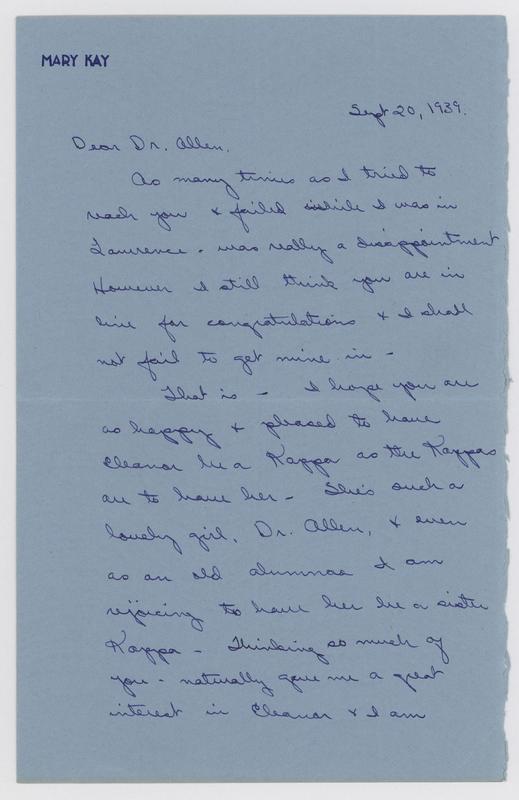 MARY KAY
Sept 20, 1939.
Dear Dr. Allen,
As many times as I tried to
reach you & failed while I was in
Lawrence - was really a disappointment
However I still think you are in
line for congratulations & I shall
not fail to get mine in -
That is - I hope you are
as happy & pleased to have
Eleanor be a Kappa as the Kappas
are to have her - She's such a
lovely girl, Dr. Allen, & even
as an old alumnae I am
rejoicing to have her be a sister
Kappa - Thinking so much of
you - naturally gave me a great
interest in Eleanor & I am